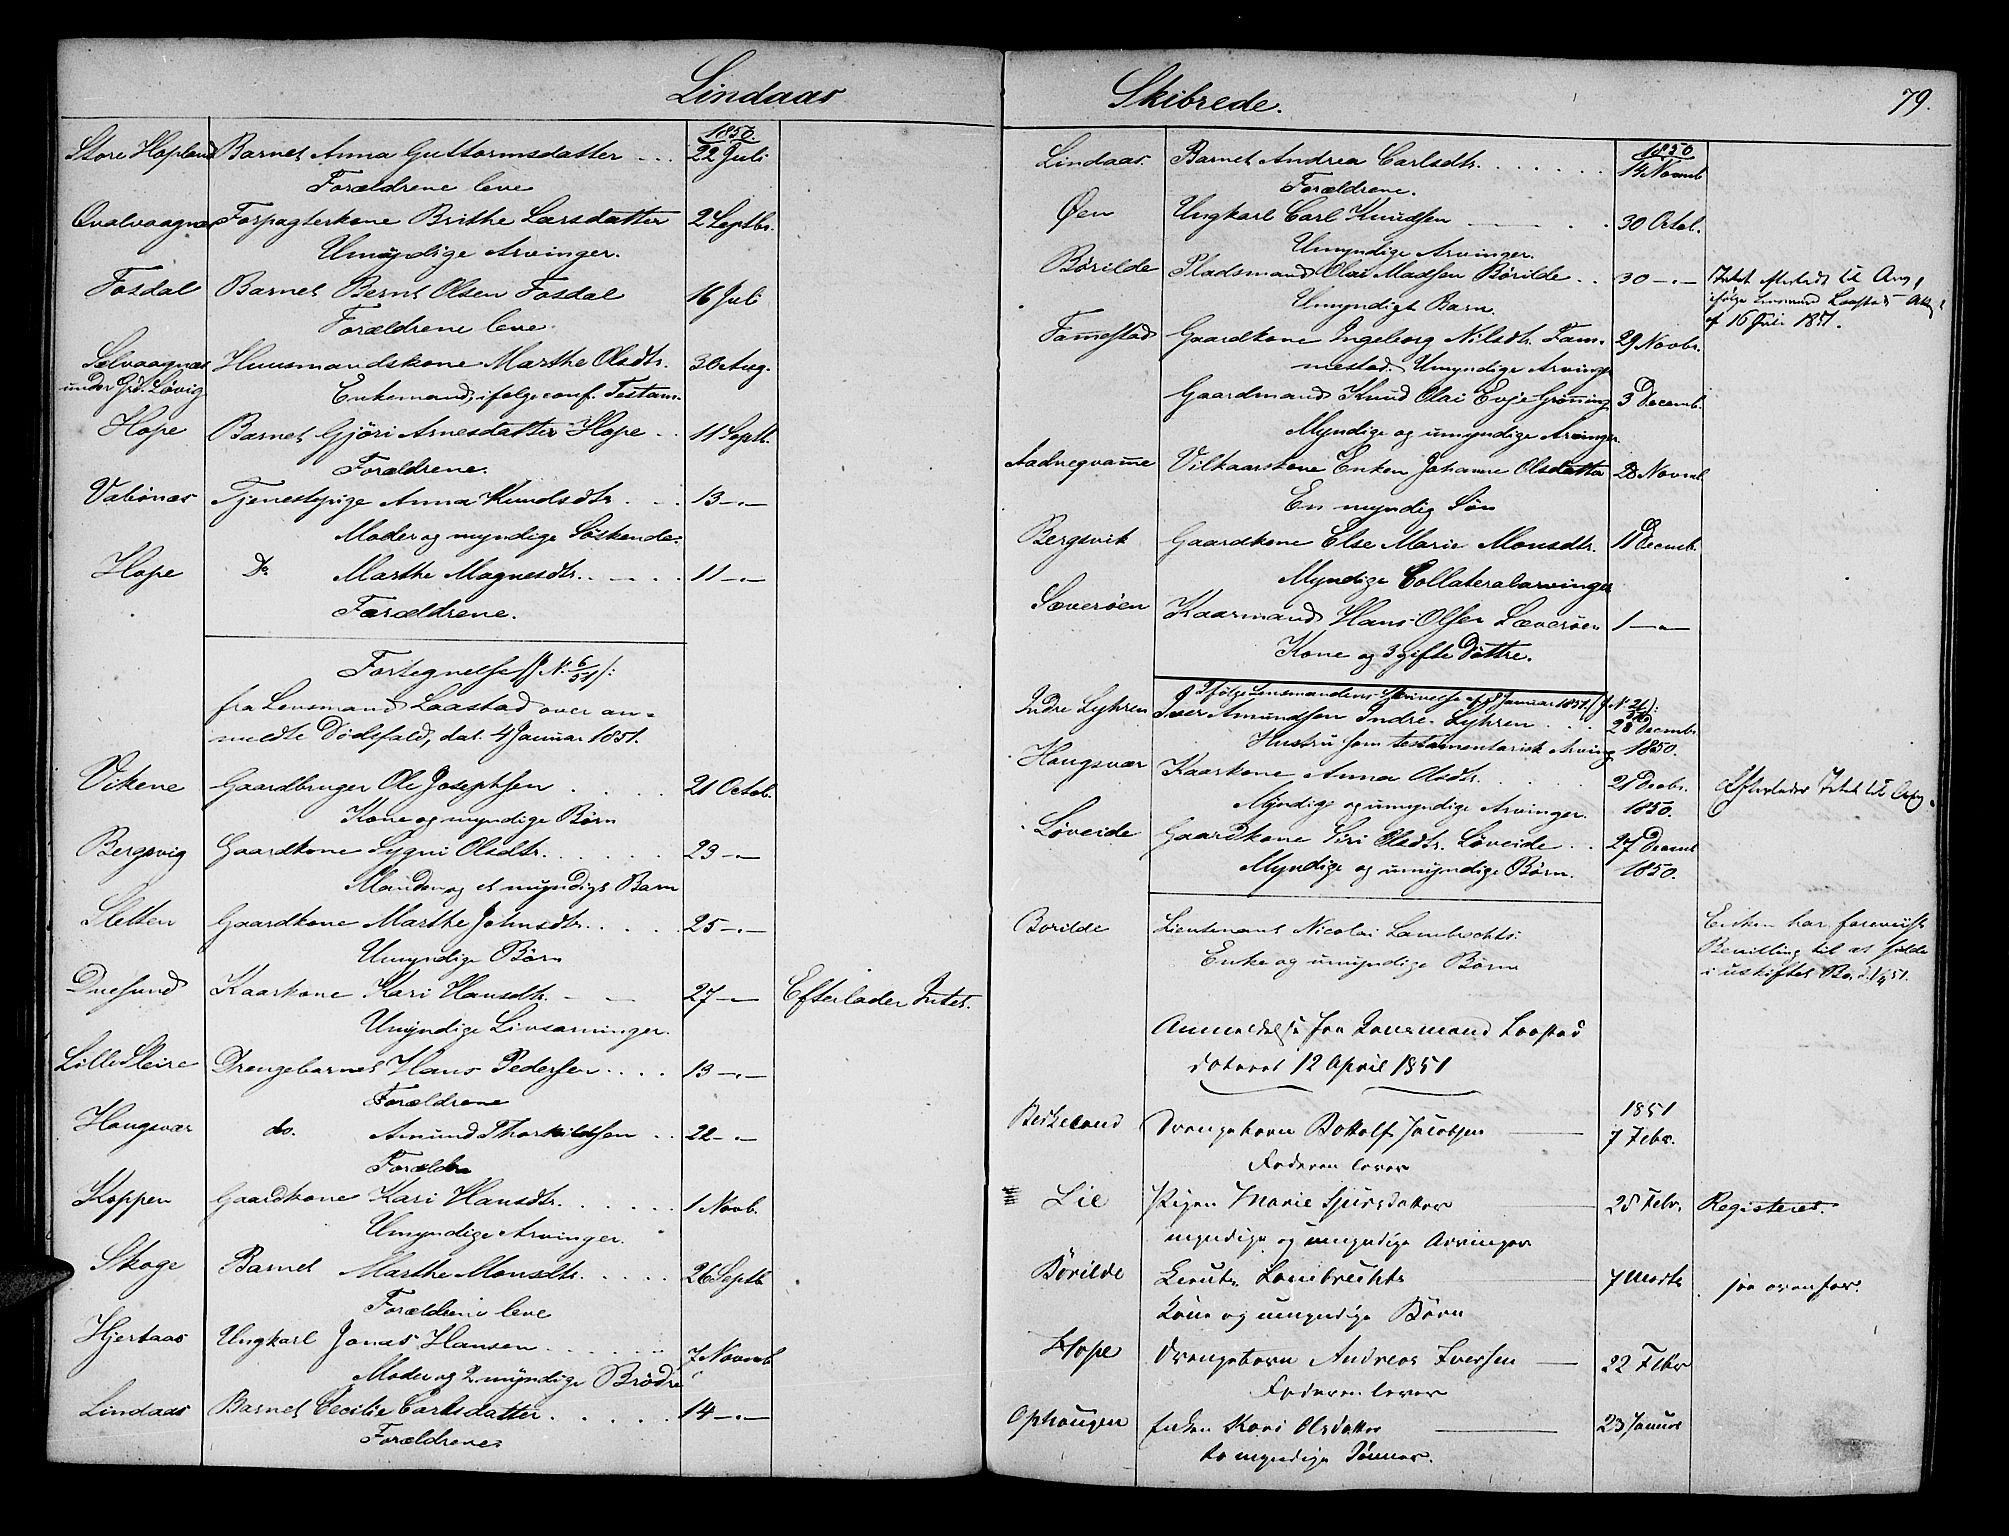 Lindaas
1850.
Store Hopland Barnet Anna Guttormsdatter 22 Juli
Forældrene leve
Qvalvaagnæs Forpagterkone Brithe Larsdatter 2 Septbr.
Umyndige Arvinger.
Fosdal Barnet Bernt Olsen Fosdal 16 Juli
Forældrene leve.
Selvaagnæs Huusmandskone Marthe Olsdtr. 30 Aug.
under Grd. Løvig Enkemand, ifølge conf. Testam.
Hope Barnet Gjöri Arnesdatter Hope 11 Septb.
Forældrene.
Vabönæs Tjenestepige Anna Knudsdtr. 13 -"-
Moder og myndige Söskende.
Hope Do Marthe Magnesdtr. 11 -"-
Forældrene.
Fortegnelse /J. N. 6/51/:
fra Lensmand Laastad over an-
meldte Dödsfald, dat. 4 Januar 1851.
Vikene Gaardbruger Ole Josephsen 21 Octob.
Kone og myndige Börn
Bergsvig Gaardkone Sygni Olsdtr. 23 -"-
Manden og et myndigt Barn
Sletten Gaardkone Marthe Johnsdtr. 25 -"-
Umyndige Börn
Duesund Kaarkone Kari Hansdtr. 27 -"- Efterlader Intet.
Umyndige Livsarvinger.
Lille Sleire Drengebarnet Hans Pedersen 13 -"-
Forældrene
Hougsvær do. Amund Thorkildsen 22 -"-
Forældre
Koppen Gaardkone Kari Hansdtr. 1 Novb.
Umyndige Arvinger.
Skoge Barnet Marthe Monsdtr. 26 Septb
Forældrene leve
Hjertaas Ungkarl Jonas Hansen 7 Novemb
Moder og 2 myndige Brödre
Lindaas Barnet Cecilie Carlsdatter 14 -"-
Forældrenes
Skibrede. 79.
1850
Lindaas Barnet Andrea Carlsdtr. 14 Novemb
Forældrene.
Øen Ungkarl Carl Knudsen 30 Octob.
Umyndige Arvinger.
Börilde Pladsmand Olai Madsen Börilde 30 -"- Intet Afstedt til Arv,
Umyndigt Barn. ifølge Lensmand Laastads
af 16 Juli 1851.
Famestad Gaardkone Ingeborg Nilsdtr. Fam- 29 Novbr.
mestad. Umyndige Arvinge
Gaardmand Knud Olai Evje Grönning 3 Decemb.
Myndige og umyndige Arvinger.
Aadneqvamme Vilkaarskone Enken Johanne Olsdatter 28 Novemb.
En myndig Sön
Bergsvik Gaardkone Else Marie Monsdtr. 11 Decemb.
Myndige Collateralarvinger
Sæveröen Kaarmand Hans Olsen Sæveröen 1 -"-
Kone og 3 gifte Döttre.
Ifølge Lensmandens Skrivelse af 8 Januar 1851. /J. N. 26/
Indre Lyhren Iver Amundsen Indre-Lyhren 28 Decembr.
Hustru som testamentarisk Arving 1850.
Hougsvær Kaarkone Anna Olsdtr. 21 Decbr. Efterlader Intet til Arv.
Myndige og umyndige Arvinger. 1850.
Løveide Gaardkone Siri Olsdtr. Løveide 27 Decemb
Myndige og umyndige Börn. 1850.
Borilde Lieutenant Nicolai Lambrechts: Enken har foreviist
Enke og umyndige Börn Bevilling til at sidde
i uskiftet Bo,
Anmeldelse fra Lensmand Laastad
dateret 12 April 1851
1851
Birkeland Drengebarn Botolf Jacobsen 7 Febr.
Faderen lever
Lie Pigen Marie Sjursdatter 25 Febr. Registeret.
myndige og umyndige Arvinger
Börilde Lieut. Lambrechts 7 Marts see ovenfor.
Kone og umyndige Börn
Hope Drengebarn Andreas Iversen 22 Febr
Faderen lever
Ophougen Enken Kari Olsdatter 23 Januar
to myndige Sönner.